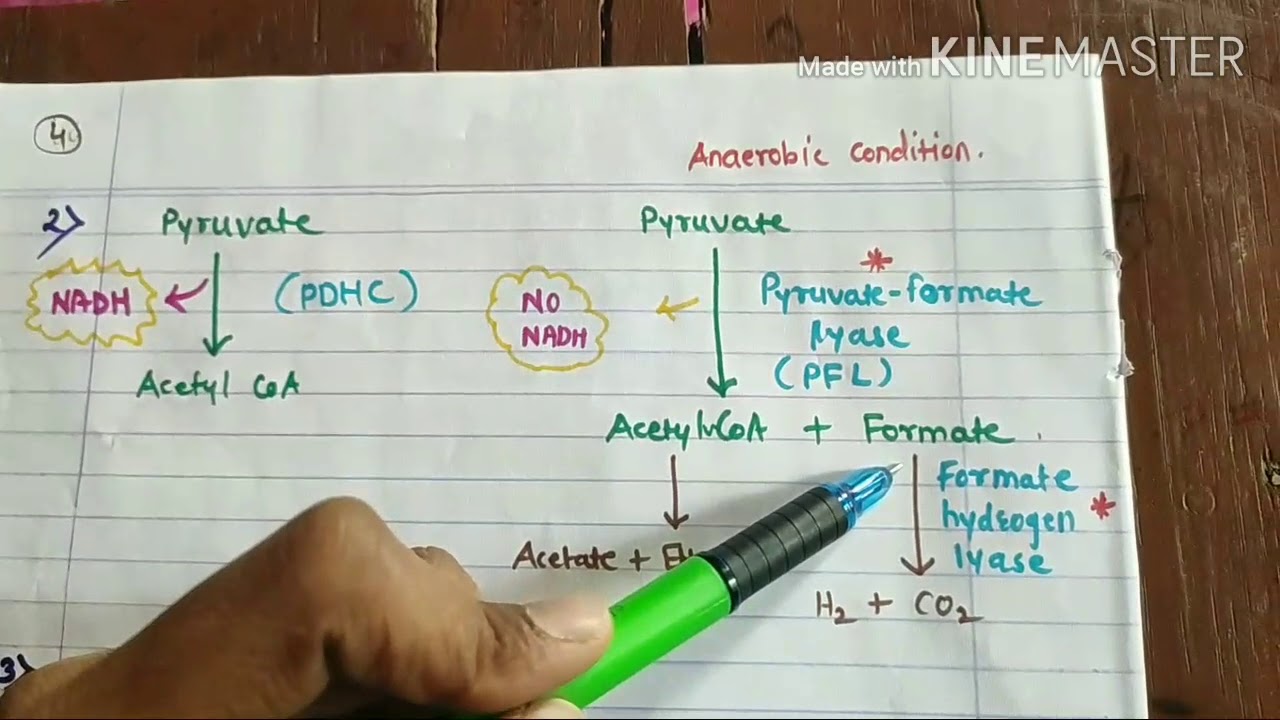 Made with KINEMASTER
4
Anaerobic condition.
2) Pyruvate
NADH
(PDHC)
Acetyl CoA
Pyruvate
NO
NADH
*
Pyruvate-formate
lyase
(PFL)
Acetyl CoA + Formate.
Acetate +
Formate
hydrogen *
lyase
H2 + CO2
3)